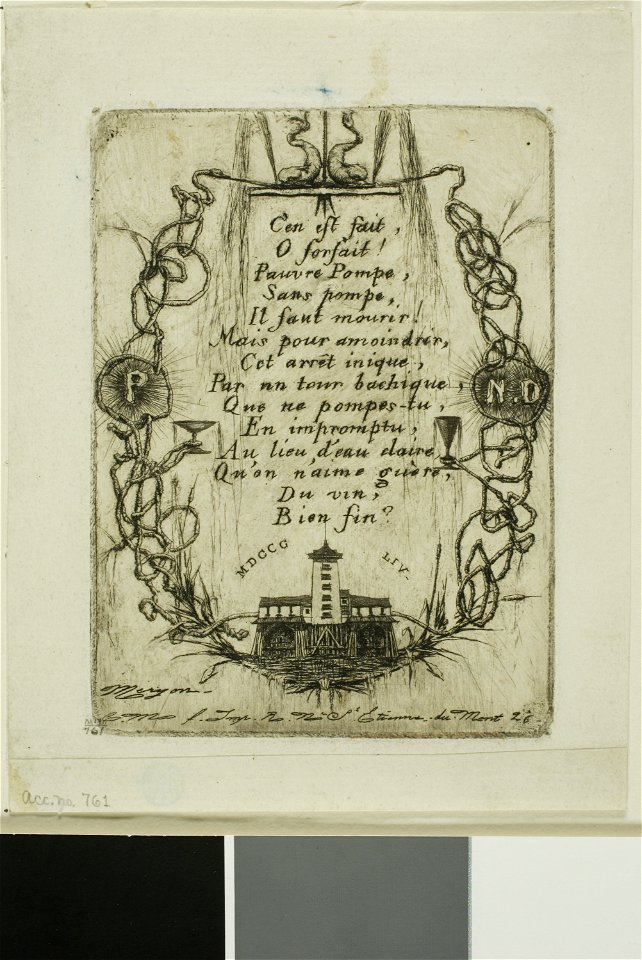 C'en est fait,
O forfait!
Pauvre Pompe,
Sans pompe,
Il faut mourir!
Mais pour amoindrir,
Cet arrêt inique,
Par un tour bachique,
Que ne pompes-tu,
En impromptu,
Au lieu d'eau claire,
Qu'on n'aime guère,
Du vin,
Bien fin?
P
N.D
MDCCCLIV.
Meryon
C.M f. Imp. R. Nve St Etienne-du-Mont 26.
761
Acc. no. 761